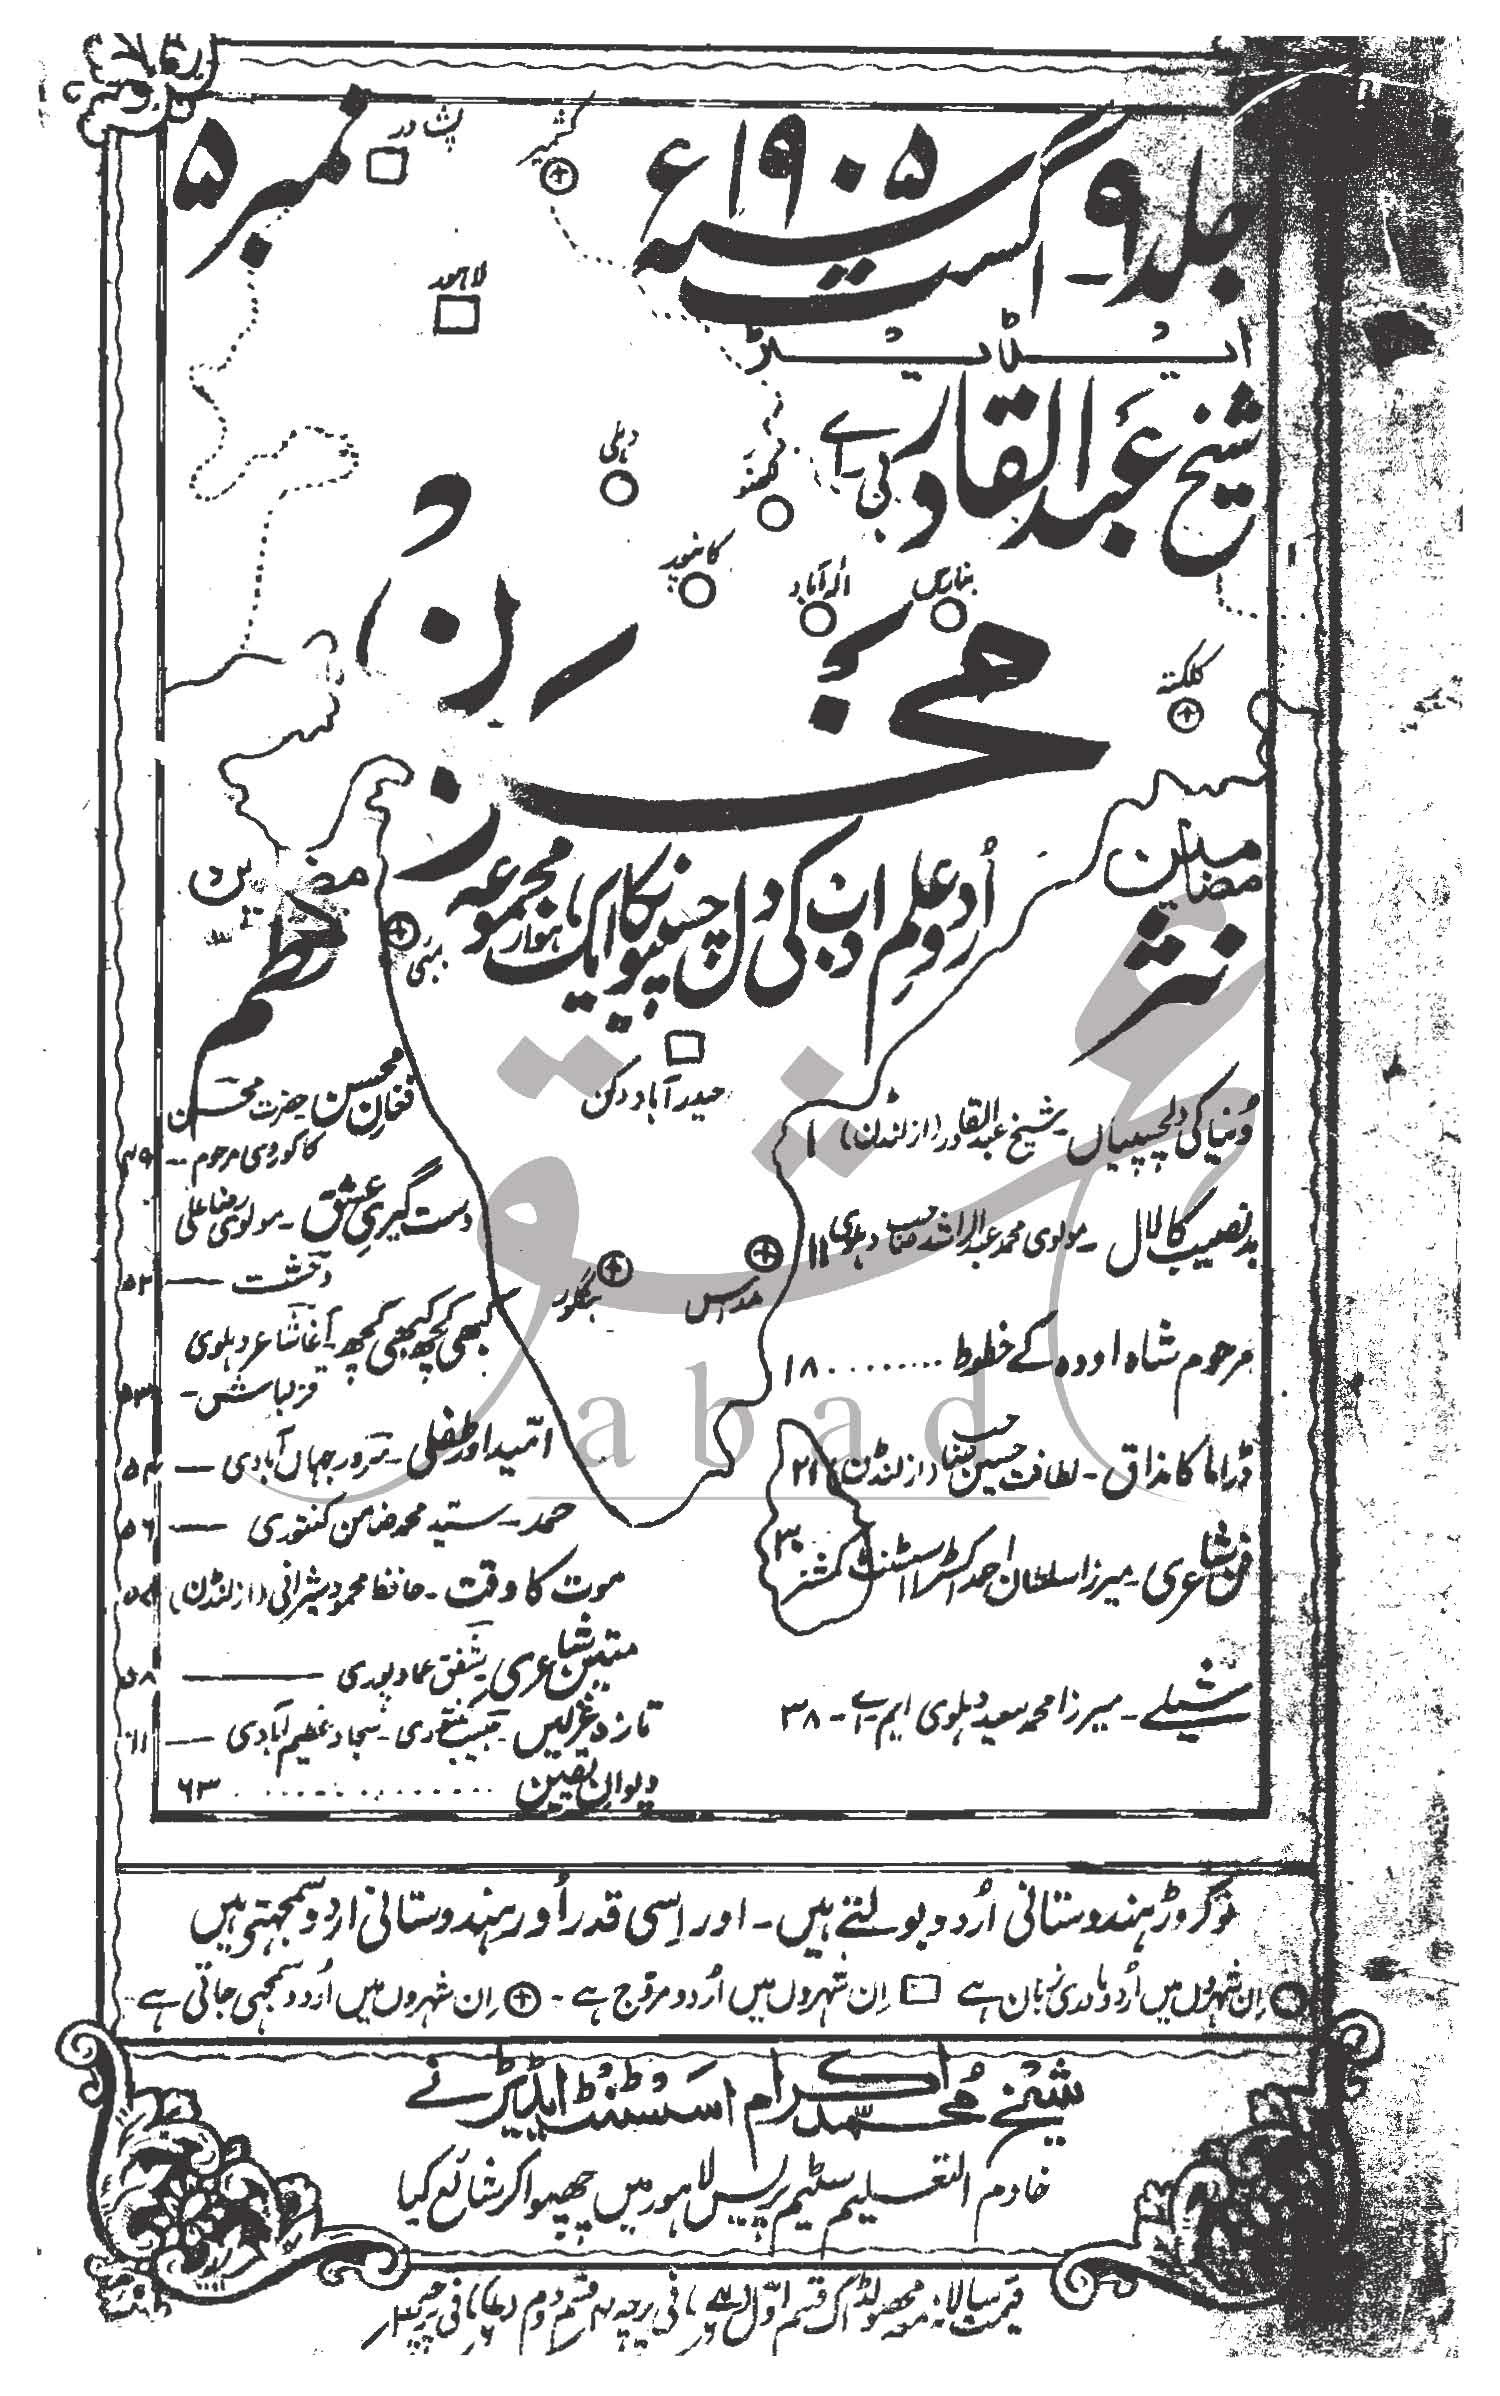 جلد ۹ - اگست سنہ ۱۹۰۵ع نمبر ۵
پشاور
کشمیر
لاہور
ایڈیٹر
شیخ عبدالقادر بی-اے
دہلی
لکھنؤ
کانپور
الہ آباد
بنارس
کلکتہ
مخزن
اردو علم ادب کی دلچسپیوں کا ایک ماہوار مجموعہ
بمبئی
حیدرآباد دکن
مدراس
بنگلور
مضامین
نثر
دنیا کی دلچسپیاں - شیخ عبدالقادر (از لندن) ۱
بدنصیب کا لال - مولوی محمد عبدالراشد صاحب دہلوی ۱۱
مرحوم شاہ اودہ کے خطوط ........ ۱۸
ڈراما کا مذاق - لطافت حسین صاحب (از لندن) ۲۱
فن شاعری - میرزا سلطان احمد اکسٹرا اسسٹنٹ کمشنر ۳۰
شیلے - میرزا محمد سعید دہلوی ایم-اے - ۳۸
مضامین
نظم
فغان محسن حضرت محسن
کاکوروی مرحوم -- ۴۹
دست گیری عشق - مولوی رضا علی
وحشت — ۵۲
کبھی کچھ کبھی کچھ - آغا شاعر دہلوی
قزلباش - ۵۳
امید اور طفلی - سرور جہاں آبادی — ۵۴
حمد - سید محمد ضامن کنتوری — ۵۶
موت کا وقت - حافظ محمود شیرانی (از لندن)
متین شاعری - شفق عمادپوری — ۵۸
تازہ غزلیں - سجاد عظیم آبادی —
دیوان یقین ........ ۶۳
نو کروڑ ہندوستانی اُردو بولتے ہیں - اور اِسی قدر اَور ہندوستانی اردو سمجھتے ہیں
اِن شہروں میں اُردو مادری زبان ہے اِن شہروں میں اُردو مروّج ہے - اِن شہروں میں اُردو سمجھی جاتی ہے
شیخ محمد اکرام اسسٹنٹ ایڈیٹر نے
خادم التعلیم سٹیم پریس لاہور میں چھپوا کر شائع کیا
قیمت سالانہ معہ محصول ڈاک قسم اوّل فی پرچہ قسم دوم فی پرچہ
abad